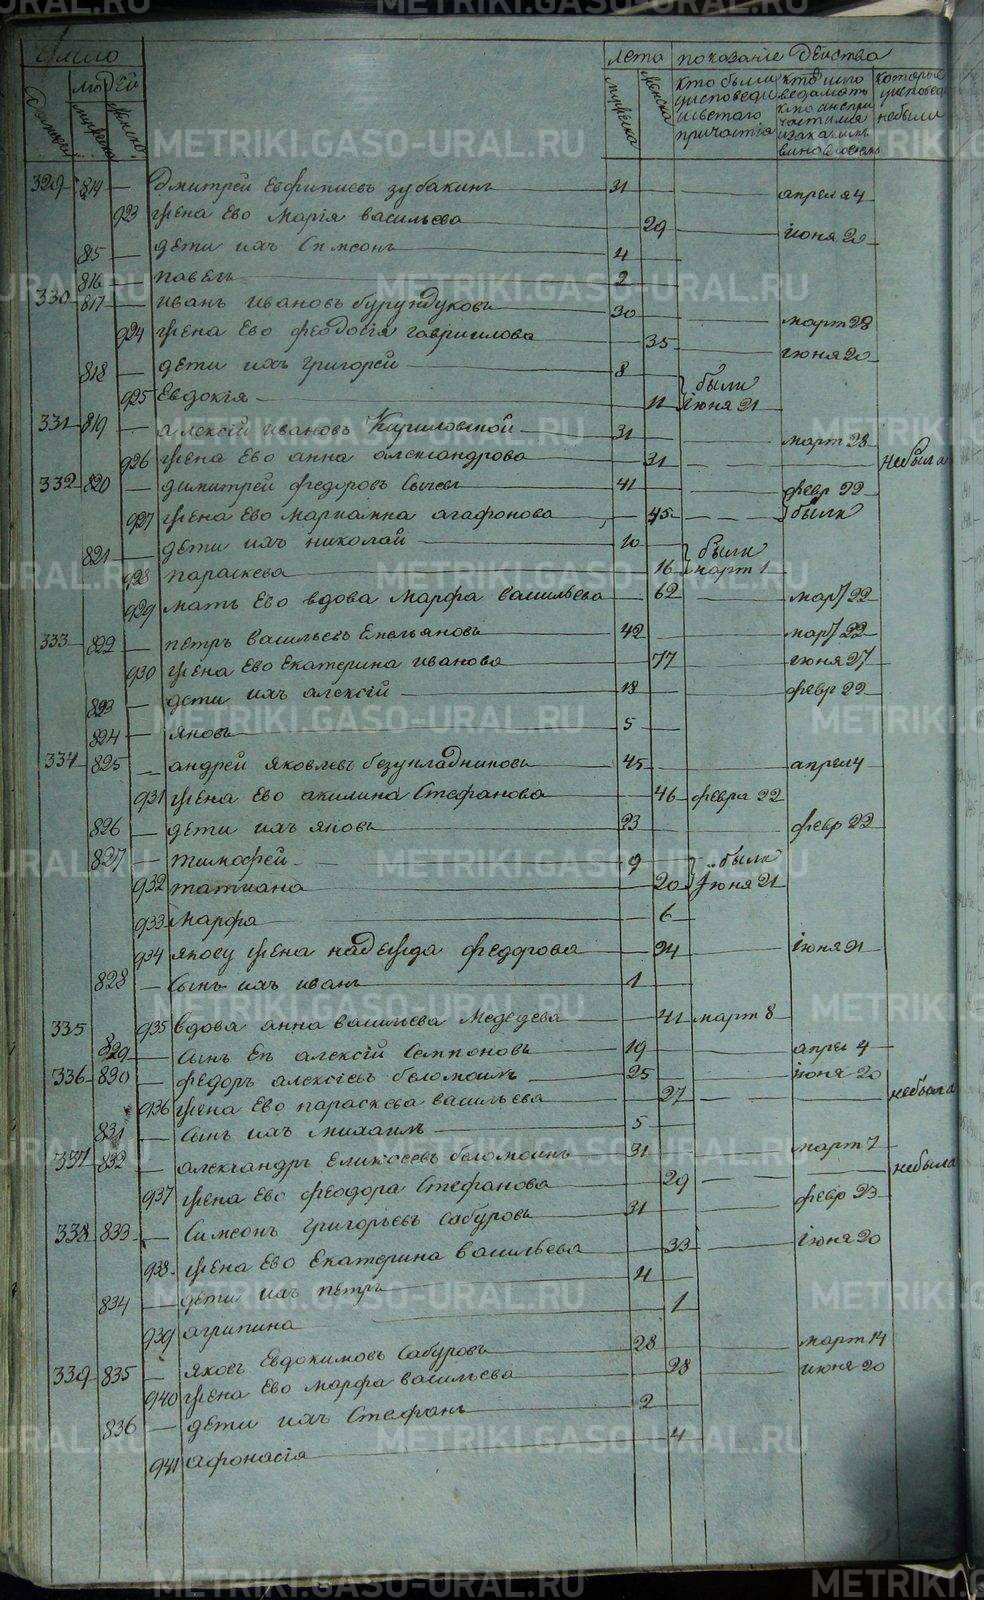 Число лета показание Действа
людей
Домовъ мужска женска мужска женска
кто были у исповеди и святаго причастія
которые у исповеди небыли
329 814 — Дмитрей Евфимиевъ Зубакинъ 31 — апреля 4
923 жена Ево Марія васильева 29 — июня 20
815 — дети ихъ Симеонъ 4
816 — павелъ 2
330 817 — иванъ ивановъ бурундуковъ 30 — март 28
924 жена Ево феодосія гавриилова 35 — июня 20
818 — дети ихъ григорей 8
925 Евдокія — 11 были июня 21
331 819 — алексій ивановъ Кириловской 31 — март 28
926 жена Ево анна александрова 31 — — небыла
332 820 — димитрей федоровъ Сычевъ 41 — февр 22
927 жена Ево марианна агафонова 45 — были
821 — дети ихъ николай 10
928 параскева 16 были март 1
929 мать Ево вдова марфа васильева 62 — март 22
333 822 — петръ васильевъ Емельяновъ 42 — март 22
930 жена Ево Екатерина иванова 77 — июня 27
823 — дети ихъ алексій — 18 — февр 22
824 — яковъ 5
334 825 — андрей яковлевъ безукладниковъ 45 — апрел 4
931 жена Ево акилина Стефанова 46 февра 22
826 — дети ихъ яковъ 23 — февр 22
827 — тимофей — 9 были
932 татиана 20 июня 21
933 марфа 6
934 якову жена надежда федорова 24 — июня 21
828 — Сынъ ихъ иванъ 1
335 935 вдова анна васильева Медедева 41 март 8
829 — Сынъ Еѣ алексій Семионовъ 19 — апрел 4
336 830 — федоръ алексіевъ беломоинъ 25 — июня 20
936 жена Ево параскева васильева 27 — — небыла
831 — Сынъ ихъ михаилъ 5
337 832 — александръ Еликсеевъ беломоинъ 31 — март 7
937 жена Ево феодора Стефанова 29 — — небыла
338 833 — Симеонъ григорьевъ сабуровъ 31 — февр 23
938 жена Ево Екатерина васильева 33 — июня 20
834 — дети ихъ петръ 4
939 агрипина 1
339 835 — яковъ Евдокимовъ Сабуровъ 28 — март 14
940 жена Ево марфа васильева 28 — июня 20
836 — дети ихъ Стефанъ 2
941 афонасія 4
METRIKI.GASO-URAL.RU